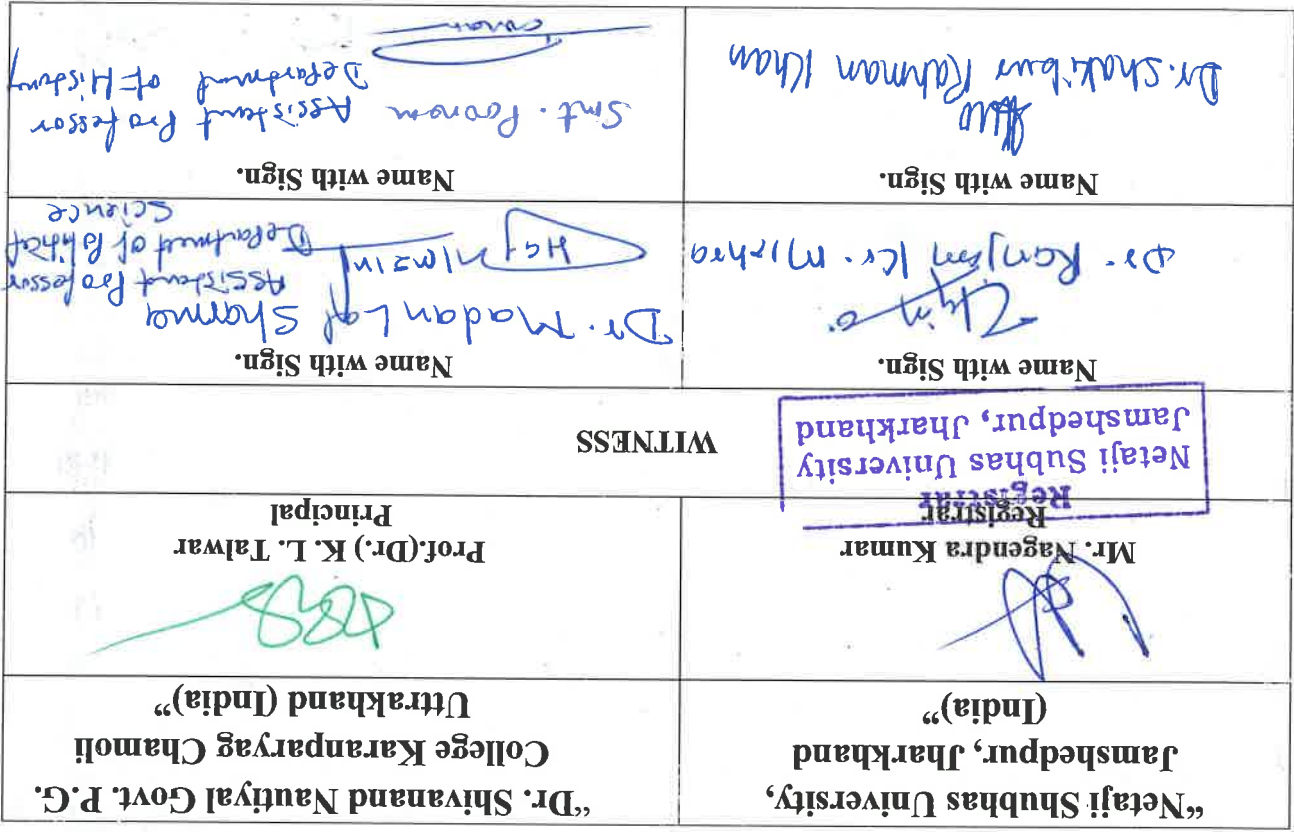 “Netaji Shubhas University,
Jamshedpur, Jharkhand
(India)”
“Dr. Shivanand Nautiyal Govt. P.G.
College Karanparyag Chamoli
Uttrakhand (India)”
Mr. Nagendra Kumar
Registrar
Registrar
Netaji Subhas University
Jamshedpur, Jharkhand
Prof.(Dr.) K. L. Talwar
Principal
WITNESS
Name with Sign.
Dr. Ranjan Kr. Mishra
Name with Sign.
Dr. Madan Lal Sharma
Assistant Professor
Department of Political
Science
Name with Sign.
Dr. Shakibur Rahman Khan
Name with Sign.
Smt. Poonam Assistant Professor
Department of History